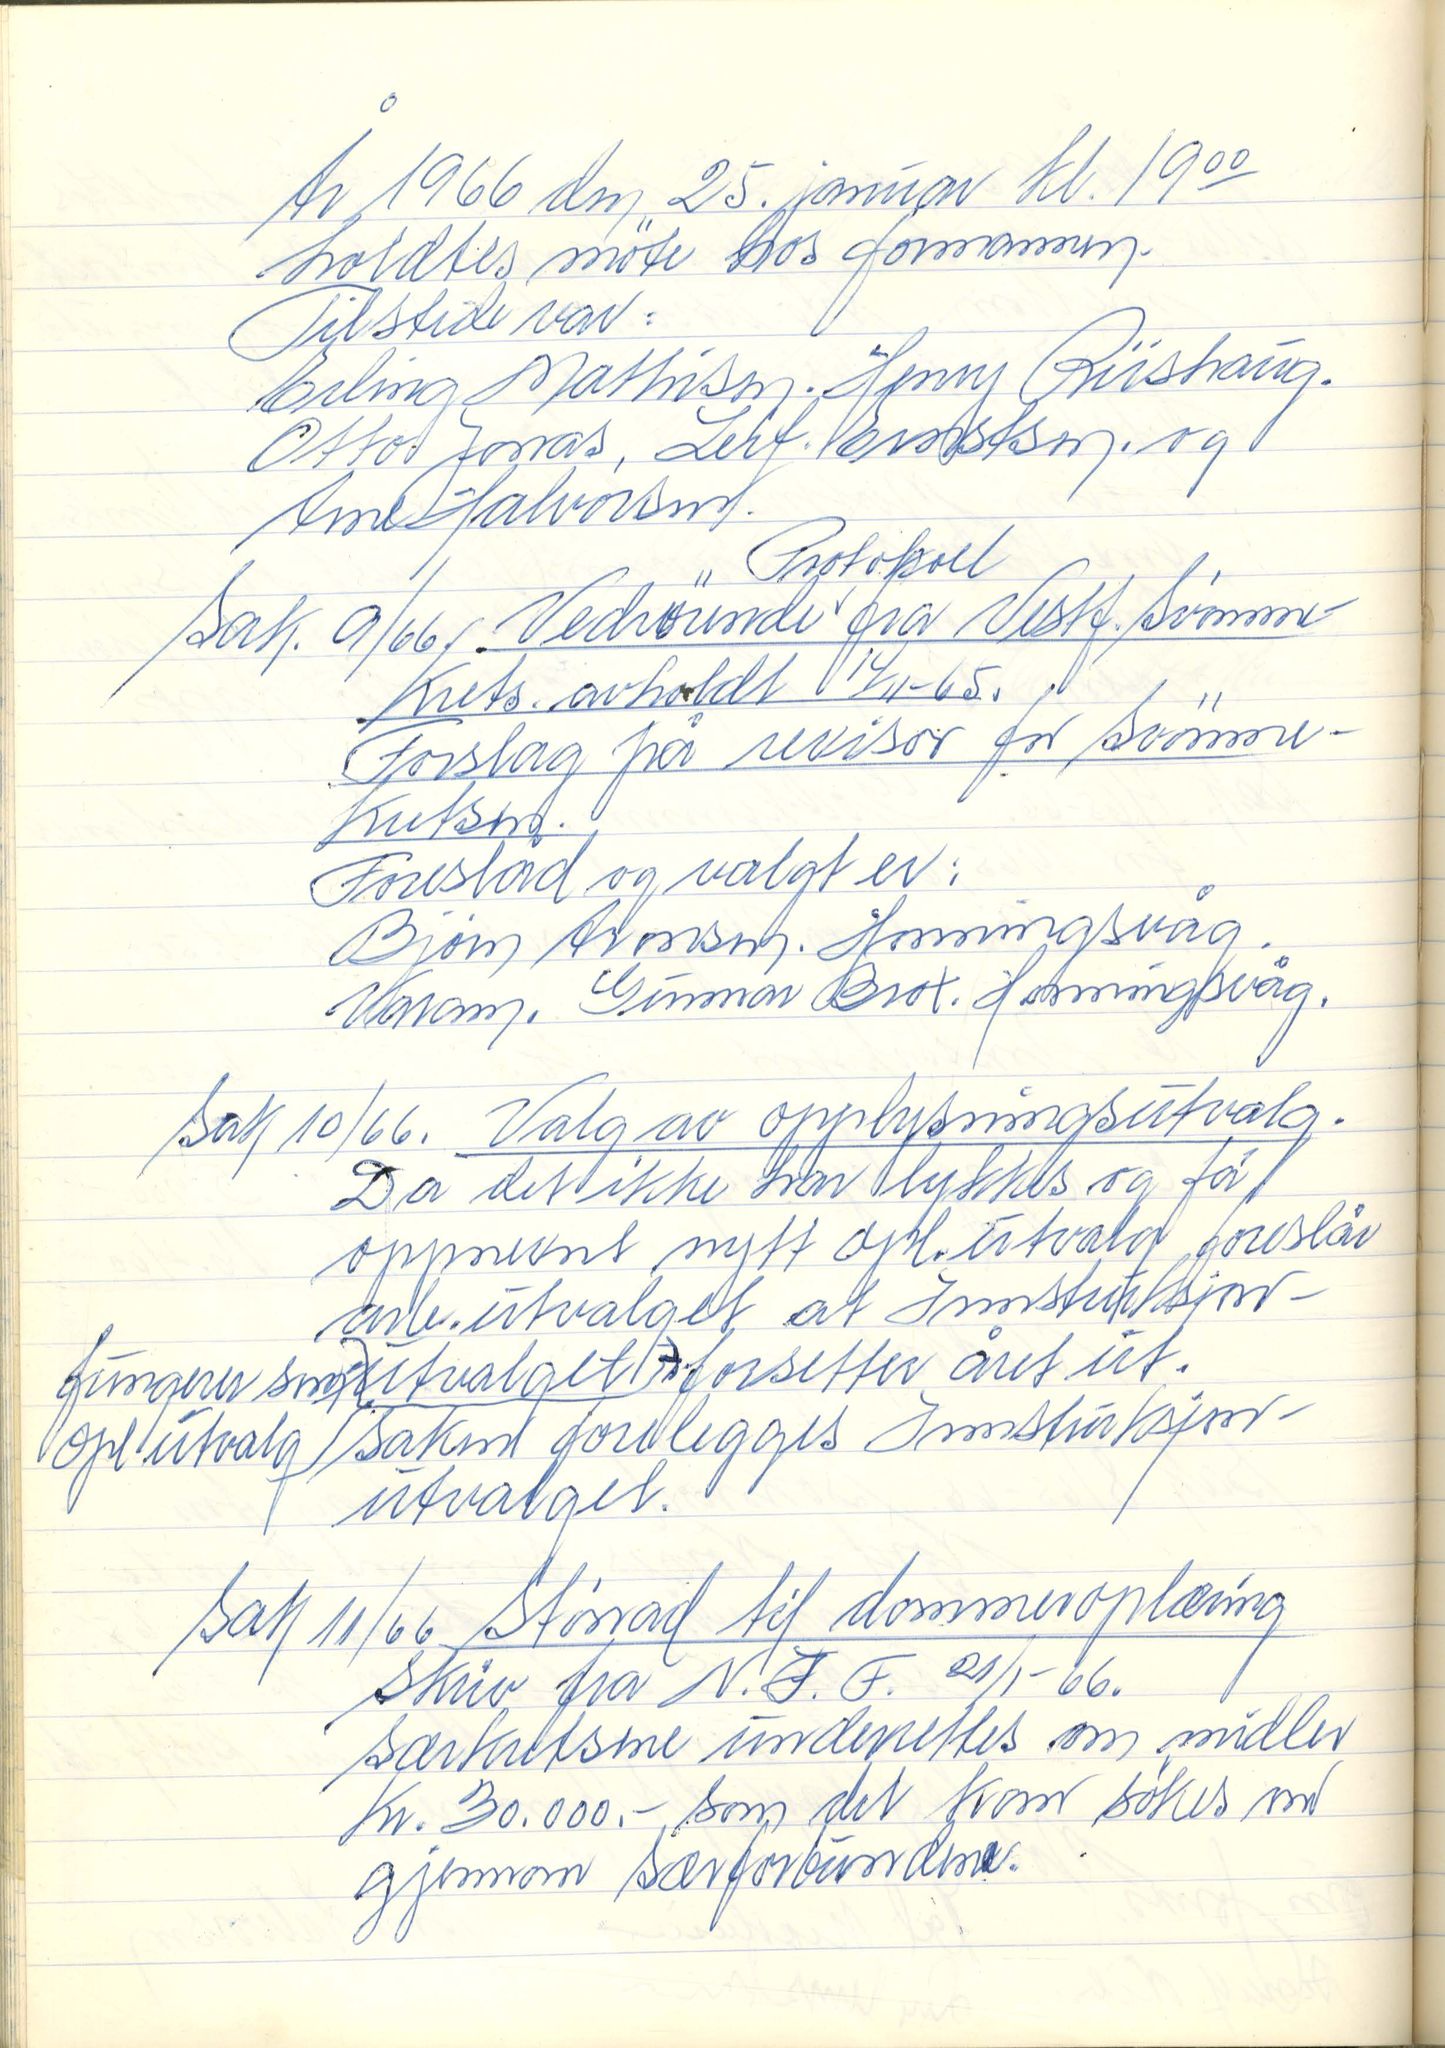 År 1966 den 25. januar kl. 19 00
holdtes möte hos formannen.
Tilstede var:
Erling Mathisen. Henry Riishaug.
Otto Jonas, Leif. Evertsen. og
Arne Halvorsen.
Protokoll
Sak. 9/66. Vedrörende fra Vestf. Svömme-
krets. avholdt 14/11-65.
Forslag på revisor for Svömme-
kretsen.
Foreslåd og valgt er:
Björn Aronsen. Honningsvåg.
Varam. Gunnar Brox. Honningsvåg.
Sak 10/66. Valg av opplysningsutvalg.
Da det ikke har lykkes og få
oppnevnt nytt opl. utvalg foreslår
arb. utvalget at Innstruksjons-
fungerer som utvalget forsetter året ut.
opl utvalg Saken forelegges Innstruksjons-
utvalget.
Sak 11/66 Stönad til dommeroplæring
Skriv fra N. I. F. 21/1-66.
Særkretsene underrettes om midler
kr. 30.000.- som det kan sökes om
gjennom særforbundene.